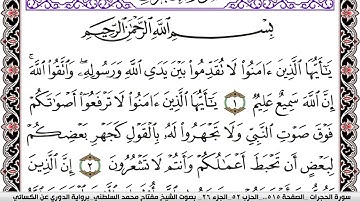 بِسْمِ اللَّهِ الرَّحْمَٰنِ الرَّحِيمِ
يَـٰٓأَيُّهَا الَّذِينَ ءَامَنُوا لَا تُقَدِّمُوا بَيْنَ يَدَىِ اللَّهِ وَرَسُولِهِۦ وَاتَّقُوا اللَّهَ
إِنَّ اللَّهَ سَمِيعٌ عَلِيمٌ ١ يَـٰٓأَيُّهَا الَّذِينَ ءَامَنُوا لَا تَرْفَعُوٓا أَصْوَٰتَكُمْ
فَوْقَ صَوْتِ النَّبِيِّ وَلَا تَجْهَرُوا لَهُۥ بِالْقَوْلِ كَجَهْرِ بَعْضِكُمْ
لِبَعْضٍ أَن تَحْبَطَ أَعْمَـٰلُكُمْ وَأَنتُمْ لَا تَشْعُرُونَ ٢ إِنَّ الَّذِينَ
سورة الحجرات .. الصفحة ٥١٥ .. الحزب ٥٢ .. الجزء ٢٦ .. بصوت الشيخ مفتاح محمد السلطني .. برواية الدوري عن الكسائي